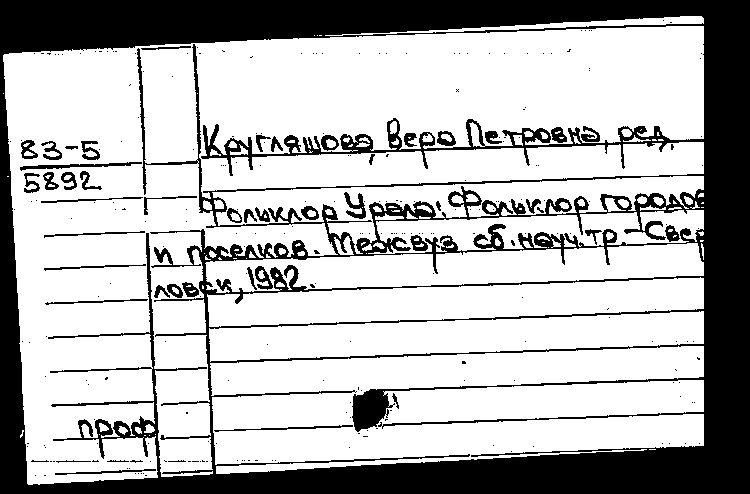 83-5
5892
Кругляшова, Вера Петровна, ред.
Фольклор Урала: Фольклор городов
и поселков. Межвуз сб. науч. тр. - Сверд
ловск, 1982.
проф.